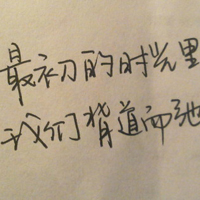 最初的时光里
我们背道而驰